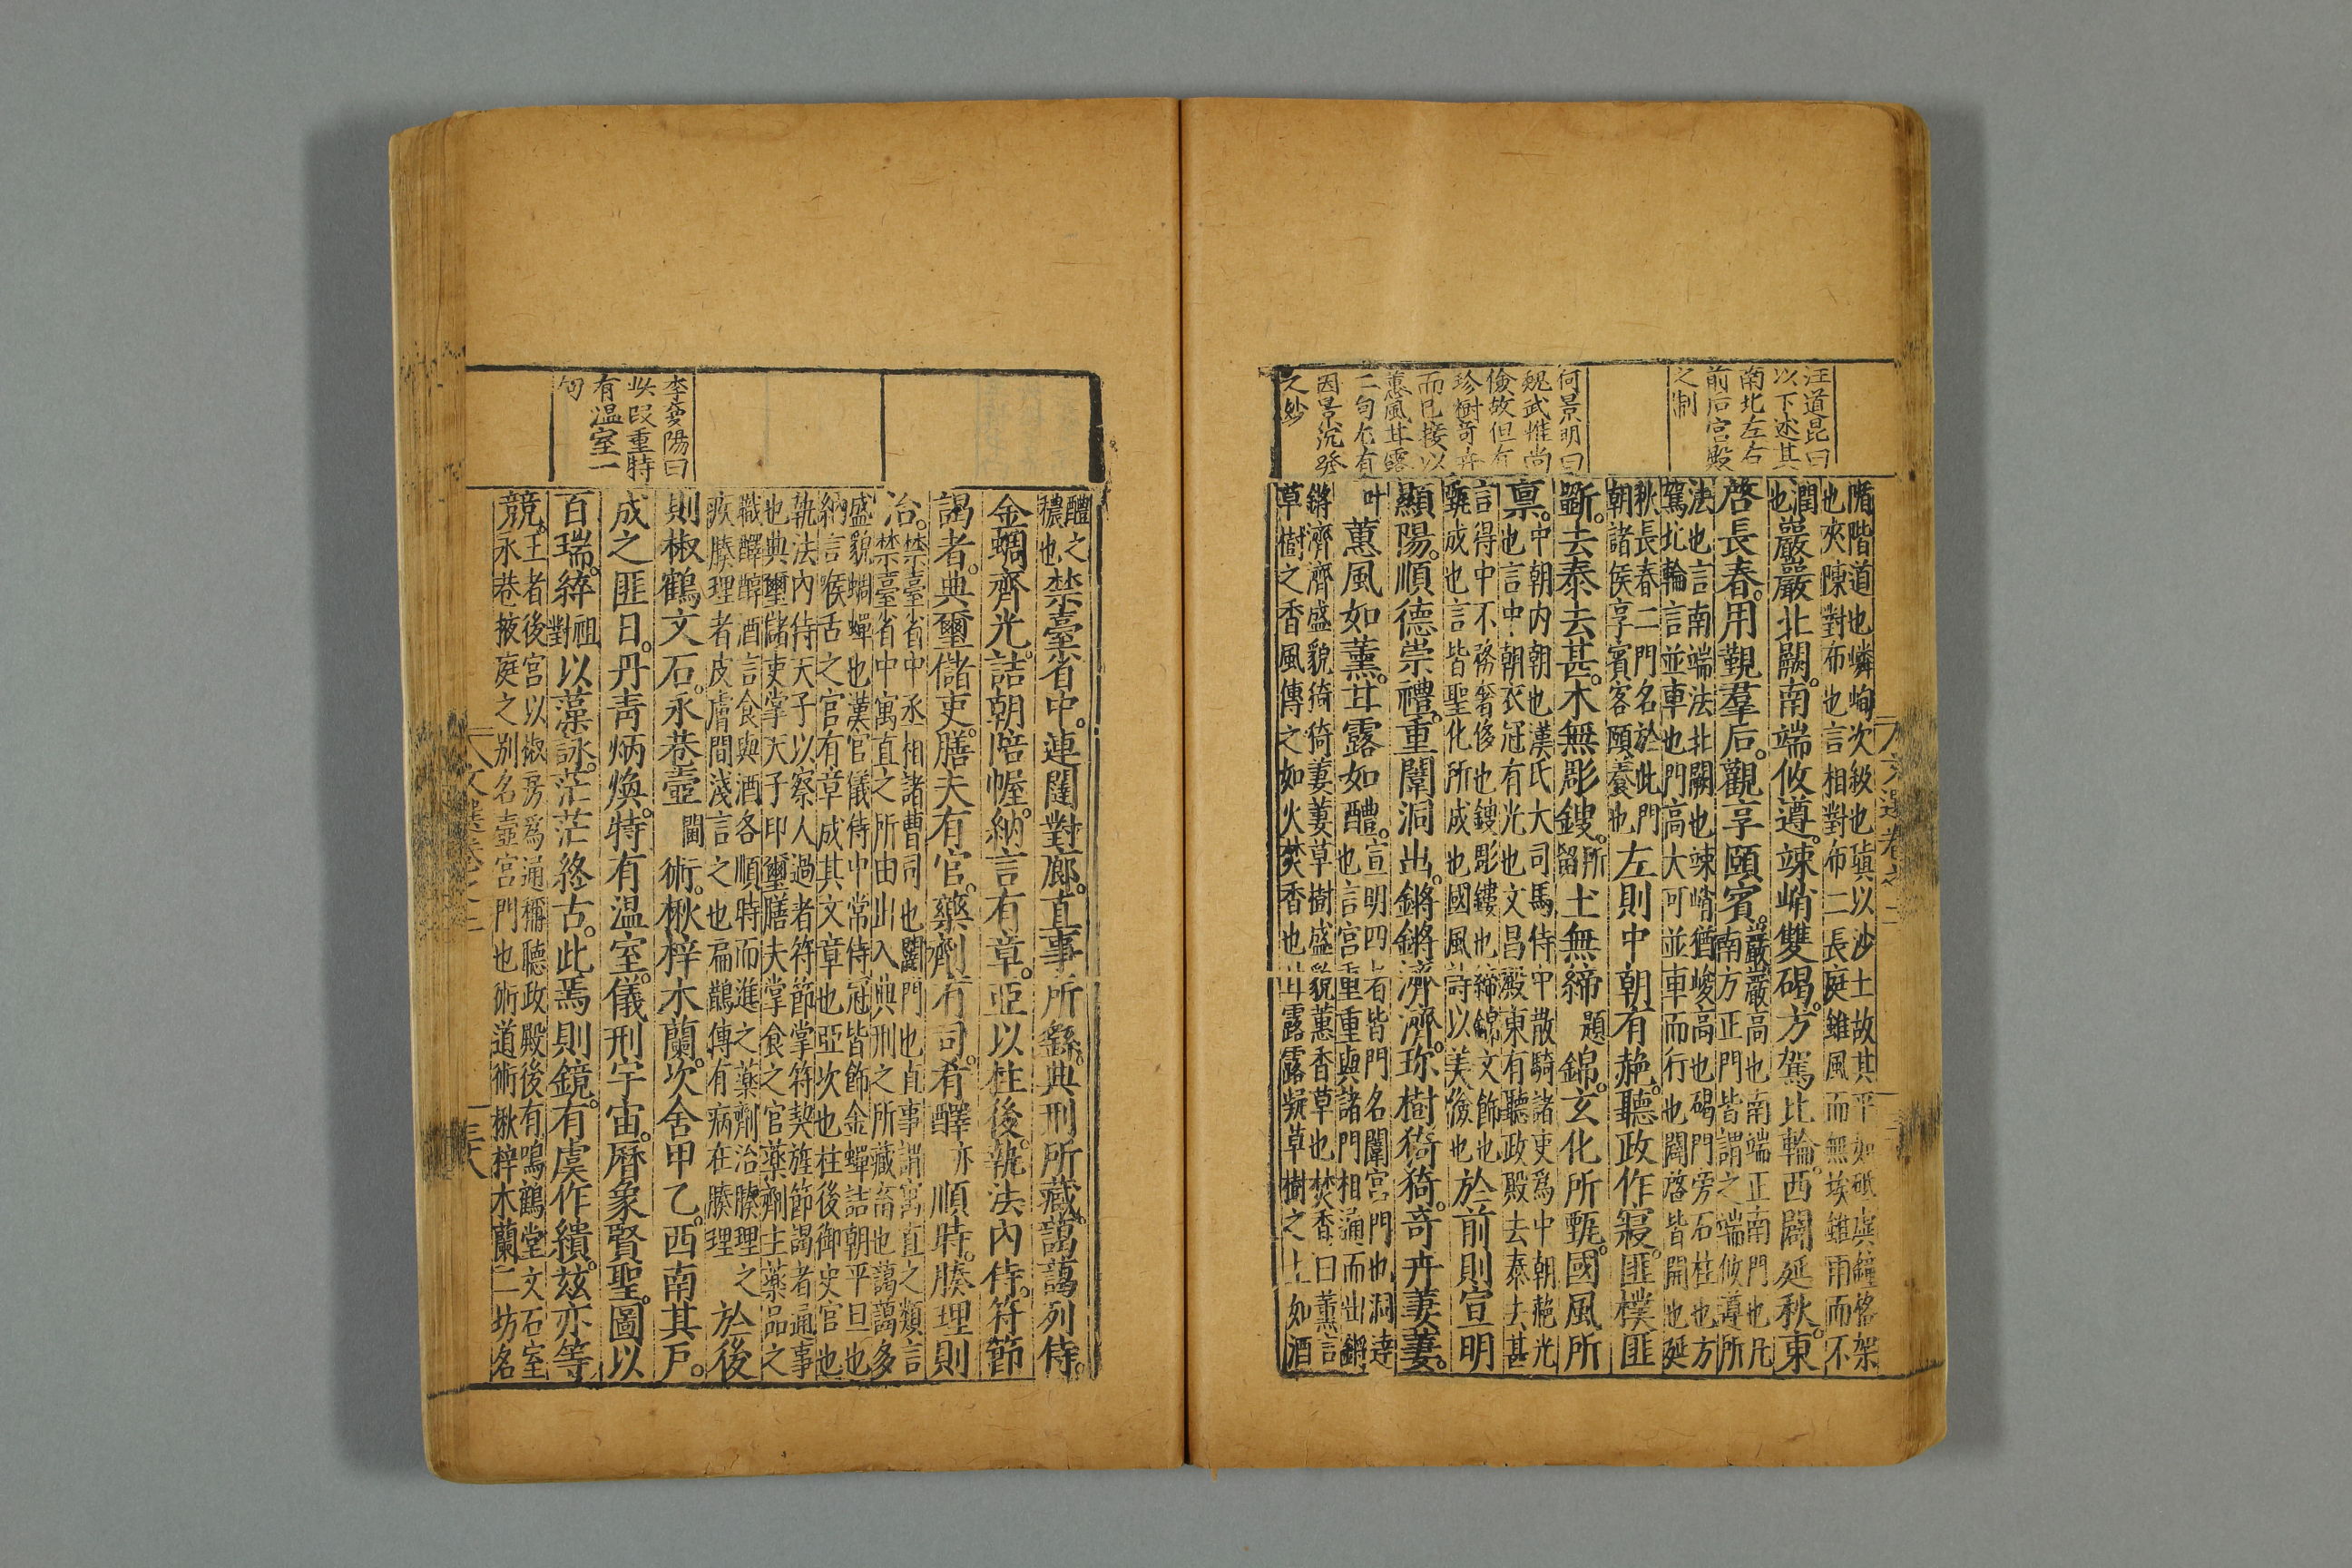 汪道昆曰
以下述其
南北左右
前后宮殿
之制
何景明曰
魏武惟尚
儉故但有
珍樹奇卉
而已接以
蕙風甘露
二句尤有
因景沉發
之妙
脩階道也嶙峋次級也塡以沙土故其平如砥與鐘簴架
也夾陳對布也言相對布二長庭雖風而無埃雖雨而不
潤
也巖巖北闕。南端攸遵。竦峭雙碣。方駕比輪。西闢延秋。東
啓長春。用覲羣后。觀享頤賓。巖巖高也南端正南門也凡
南方正門皆謂之端攸遵所
法也言南端法北闕也竦峭猶峻高也碣門旁石柱也方
駕比輪言並車也門高大可並車而行也闢啓皆開也延
秋長春二門名於此門
朝諸侯享賓客頤養也左則中朝有赩。聽政作寢。匪樸匪
斲。去泰去甚。木無彫鎪。所留土無綈題錦。玄化所甄。國風所
禀。中朝内朝也漢氏大司馬侍中散騎諸吏爲中朝赩光
也言中朝衣冠有光也文昌殿東有聽政殿去泰去甚
言得中不務奢侈也鎪彫鏤也綈錦文飾也
甄成也言皆聖化所成也國風詩以美儉也於前則宣明
顯陽。順德崇禮。重闈洞出。鏘鏘濟濟。珍樹猗猗。奇卉萋萋。
叶蕙風如薰。甘露如醴。宣明四者皆門名闈宮門也洞達
也言宮重重與諸門相通而出鏘
鏘濟濟盛貌猗猗萋萋草樹盛貌蕙香草也焚香曰薰言
草樹之香風傳之如火焚香也甘露露凝草樹之上如酒
李空陽曰
此段重特
有溫室一
句
醴之
穠也禁臺省中。連闥對廊。直事所繇。典刑所藏。藹藹列侍。
金蜩齊光。詰朝陪幄。納言有章。亞以柱後。執法內侍。符節
謁者。典璽儲吏。膳夫有官。藥劑有司。肴醳亦順時。腠理則
治。禁臺省中丞相諸曹司也闥門也直事謂寓直之類言
禁臺省中寓直之所由出入典刑之所藏畜也藹藹多
盛貌蜩蟬也漢官儀侍中常侍冠皆飾金蟬詰朝平旦也
納言喉舌之官有章成其文章也亞次也柱後御史官也
執法內侍天子以察人過者符節掌符契旌節謁者通事
也典璽儲吏掌天子印璽膳夫掌食之官藥劑主藥品之
職醳醇酒言食與酒各順時而進之藥劑治腠理之
疾腠理者皮膚間淺言之也扁鵲傳有病在腠理於後
則椒鶴文石。永巷壼閫術。楸梓木蘭。次舍甲乙。西南其戶。
成之匪日。丹青炳煥。特有溫室。儀刑宇宙。曆象賢聖。圖以
百瑞。綷祖對以藻詠。茫茫終古。此焉則鏡。有虞作繢。玆亦等
競。王者後宮以椒房爲通稱聽政殿後有鳴鶴堂文石室
永巷掖庭之別名壼宮門也術道術楸梓木蘭二坊名
文選卷之三
三八